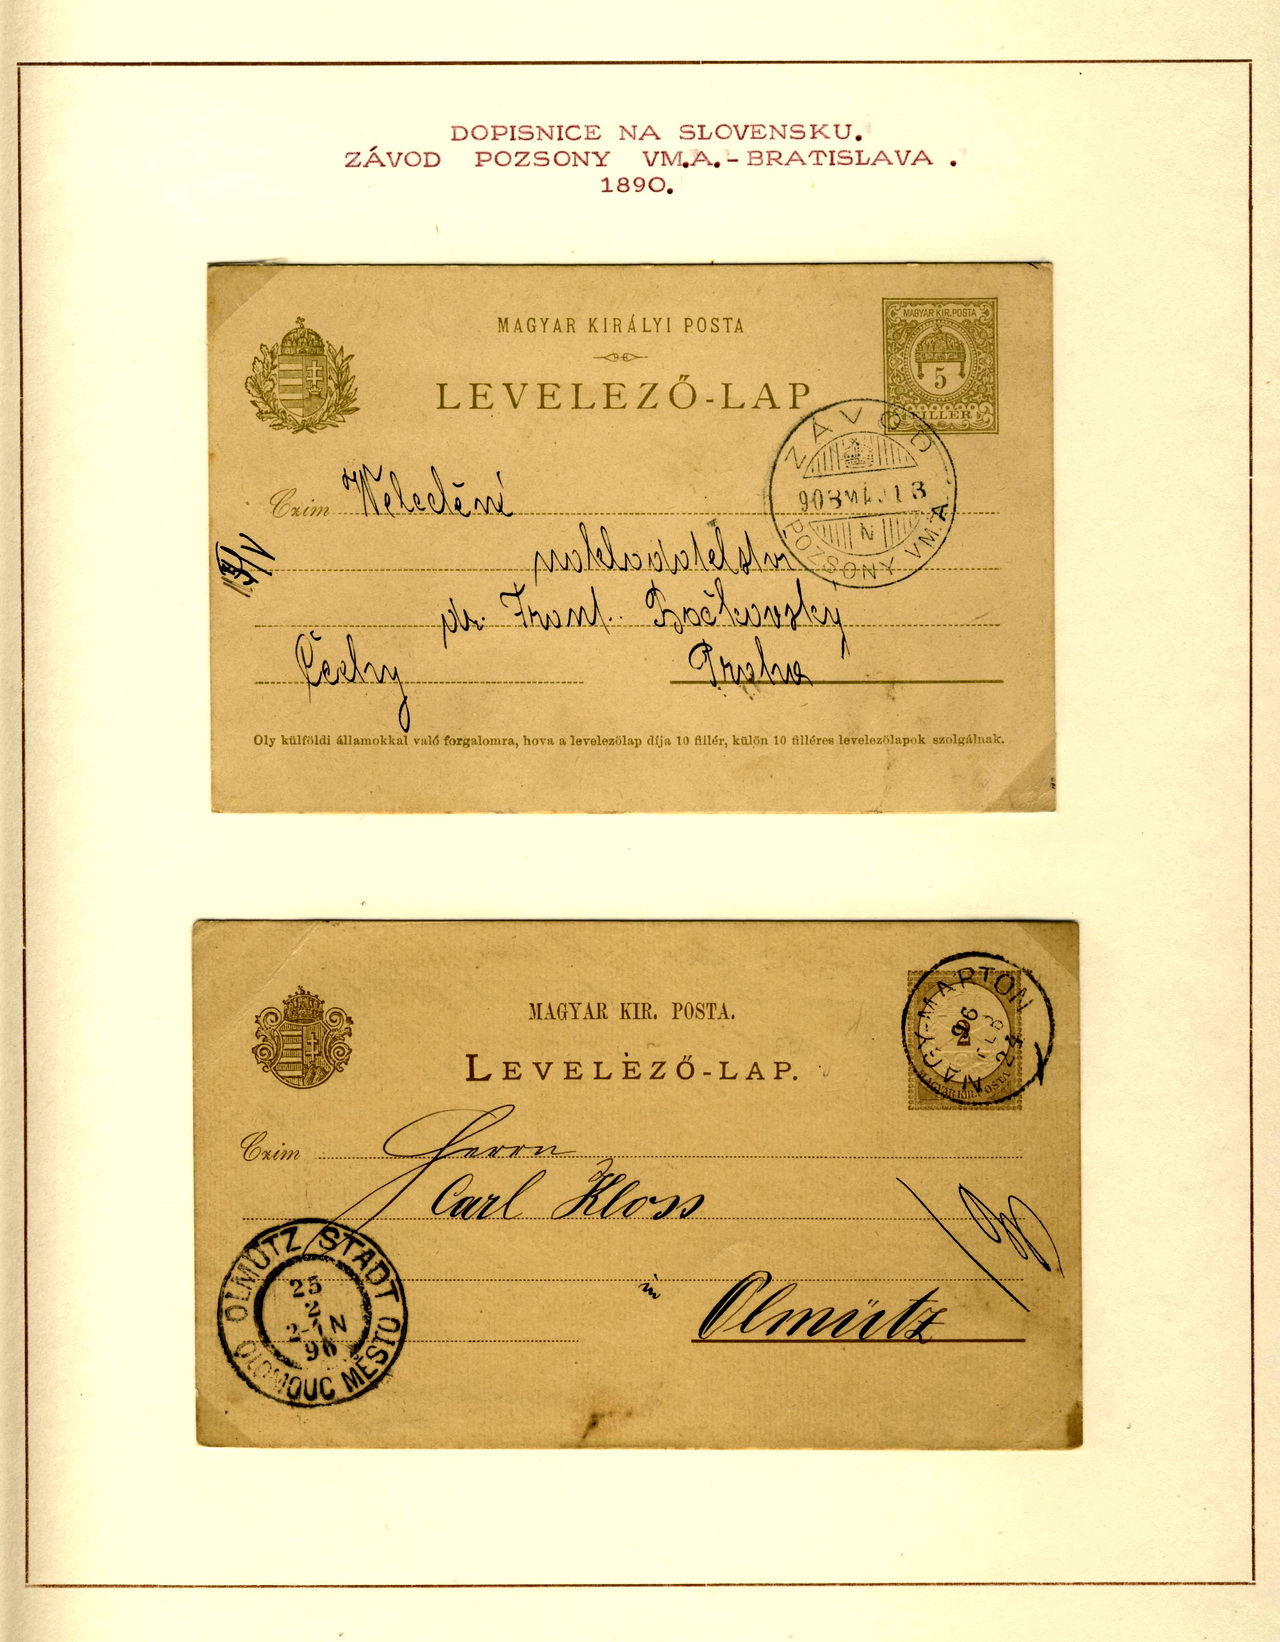 DOPISNICE NA SLOVENSKU.
ZÁVOD POZSONY VM.A.-BRATISLAVA.
1890.
MAGYAR KIRÁLYI POSTA
LEVELEZŐ-LAP
MAGYAR KIR. POSTA
5
FILLÉR
ZÁVOD
POZSONY VM.A.
N
Czim Velectěné
nakladatelství
dr. Frant. Bačkovský
Čechy Praha
Oly külföldi államokkal való forgalomra, hova a levelezőlap díja 10 fillér, külön 10 filléres levelezőlapok szolgálnak.
MAGYAR KIR. POSTA.
LEVELEZŐ-LAP.
NAGY-MARTON
96
FEB
24
2
MAGYAR KIR. POSTA
Czim Herrn
Carl Kloss
in Olmütz
OLMÜTZ STADT
25
2
2-1N
96
OLOMOUC MĚSTO